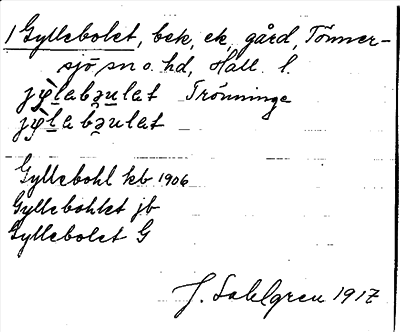 1 Gyllebolet, bek, ek, gård, Tönner-
sjö sn o. hd, Hall. l.
Trönninge
Gyllebohl kb 1906
Gyllebohlet jb
Gyllebolet G
J. Sahlgren 1917